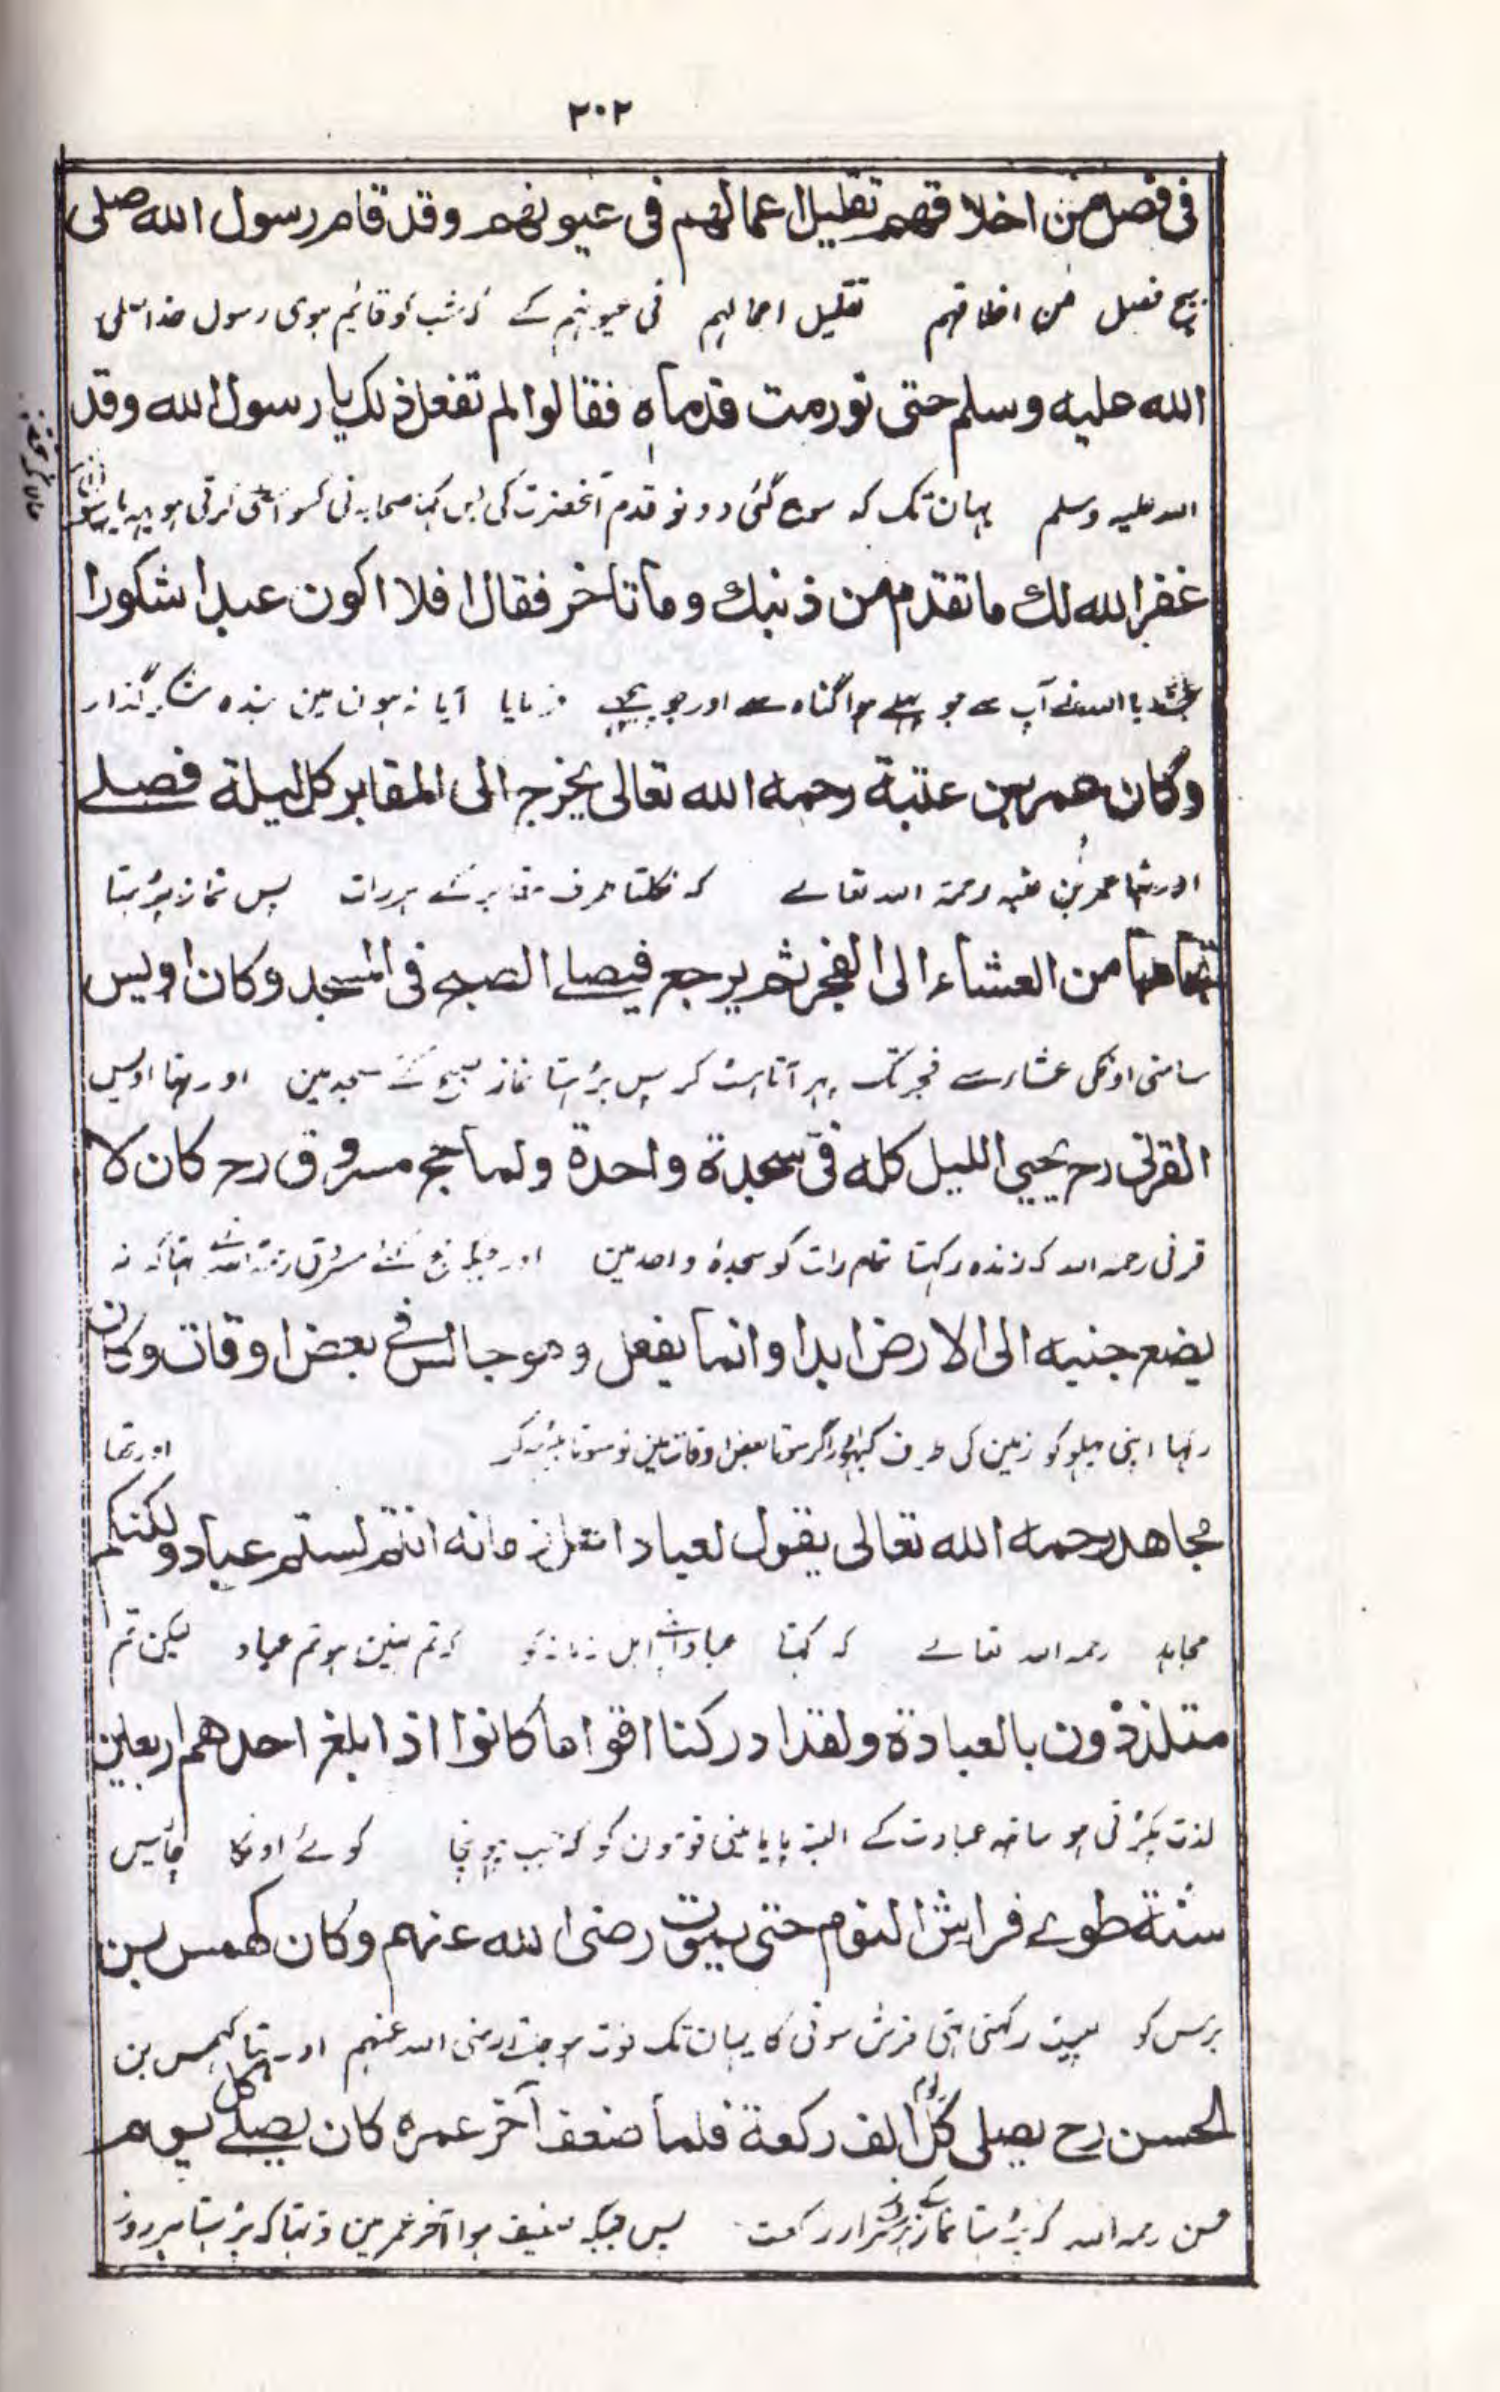 ٢٠٢
فی فصل من اخلاقهم تقلیل اعمالهم فی عیونهم وقد قام رسول الله صلی
بیچ فصل من اخلاقهم تقلیل اعمالهم فی عیونهم کے که شب کو قائیم ہوی رسول خدا صلی
الله علیه وسلم حتی تورمت قدماه فقالوا لم تفعل ذلک یا رسول الله وقد
الله علیه وسلم یہان تک که سوج گئی دونو قدم آنحضرت کی پس کہا صحابه نی کسو اسطی کرتی ہو یہه یا رسول
غفر الله لك ما تقدم من ذنبك وما تاخر فقال افلا اکون عبدا شکورا
بخشدیا الله نے آپ سے جو پہلے ہوا گناه سے اور جو پیچھے فرمایا آیا نه ہون مین بنده شکر گذار
وکان عمر بن عتبة رحمه الله تعالی یخرج الی المقابر کل لیلة فصلے
اور تہا عمر بن عتبه رحمة الله تعالے که نکلتا طرف مقابر کے ہر رات پس نماز پڑہتا
من العشاء الی الفجر ثم یرجع فیصلے الصبح فی المسجد وکان اویس
سامنی اونکی عشاء سے فجر تک پہر آتا ہٹ کر پس پڑہتا نماز صبح کے مسجد مین اور تہا اویس
القرنی رح یحیی اللیل کله فی سجدة واحدة ولما حج مسروق رح کان لا
قرنی رحمه الله که زنده رکہتا تمام رات کو سجدۂ واحد مین اور جبکہ حج کئے مسروق رحمة الله تہا که نه
یضع جنبه الی الارض ابدا وانما یفعل وهو جالس فی بعض اوقات وکان
رکہا اپنی پہلو کو زمین کی طرف کبہی اور اگر سوتا بعض اوقات مین تو سوتا بیٹہه کر اور تہا
مجاهد رحمه الله تعالی یقول لعباد اهل زمانه انتم لستم عباد ولکنکم
مجاہد رحمه الله تعالے که کہتا عباد اہل زمانه کو که تم نہین ہو تم عباد لیکن تم
متلذذون بالعبادة ولقد ادرکنا اقواما کانوا اذا بلغ احدهم اربعین
لذت پکڑنی ہو ساتہه عبادت کے البته پایا مینی قومون کو که جب پہونچا کوئے اونکا چالیس
سنة طوے فراش النوم حتی یموت رضی الله عنهم وکان کهمس بن
برس کو لپیٹ رکہتی تہی فرش سونی کا یہان تک فوت ہو جتے رضی الله عنہم اور تہا کہمس بن
الحسن رح یصلی کل یوم الف رکعة فلما ضعف آخر عمره کان یصلے کل یوم
حسن رحمه الله که پڑہتا نماز ہر روز ہزار رکعت پس جبکہ ضعیف ہوا آخر عمر مین تو تہا که پڑہتا ہر روز